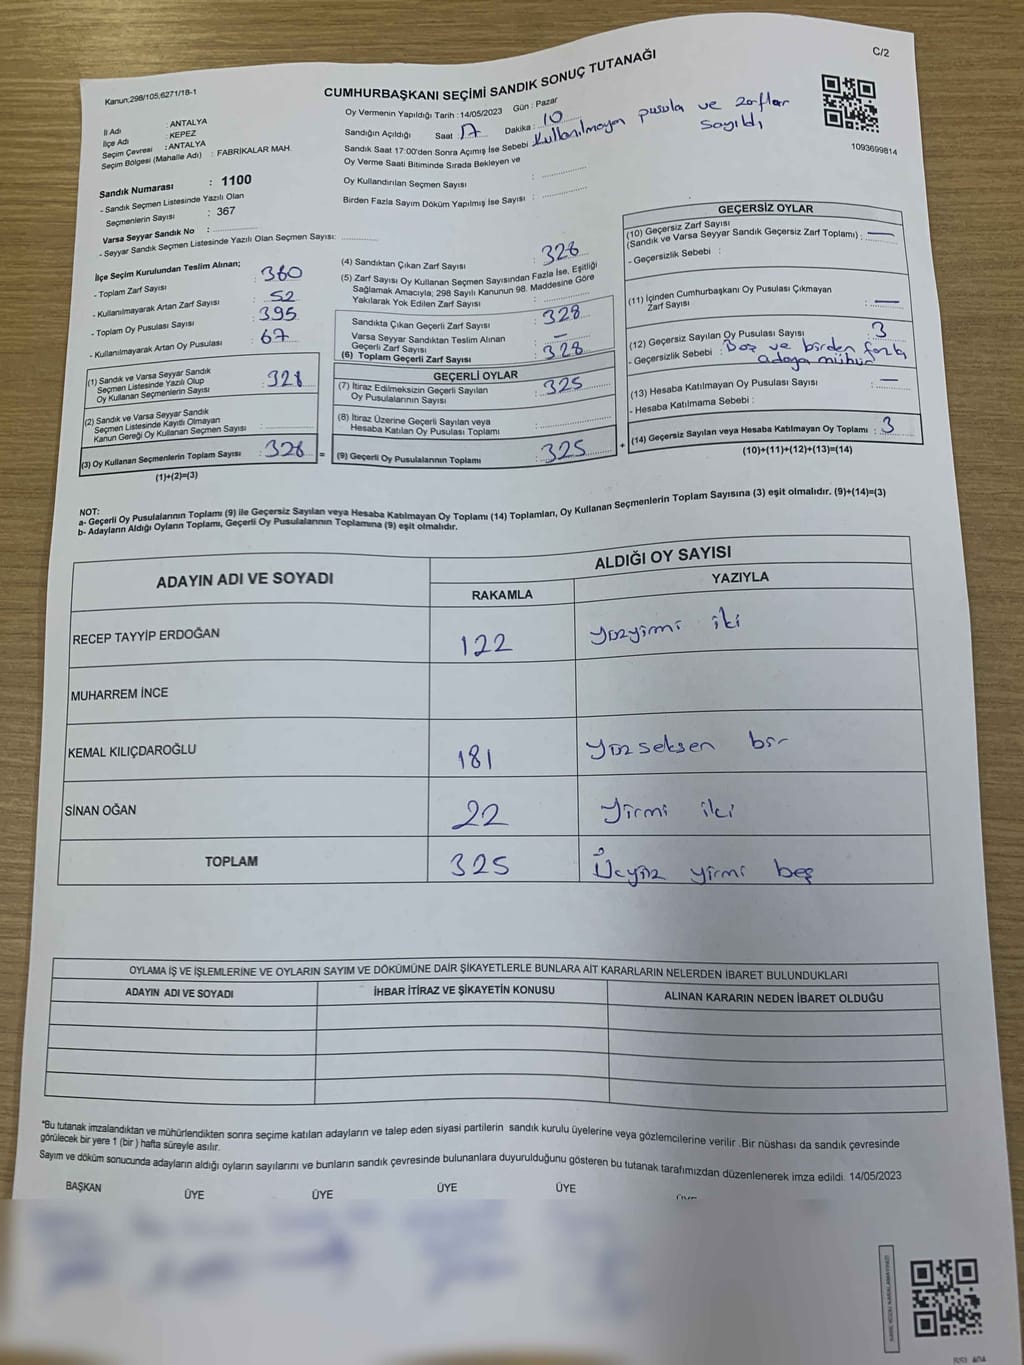 Kanun;298/105,6271/18-1
C/2
CUMHURBAŞKANI SEÇİMİ SANDIK SONUÇ TUTANAĞI
Oy Vermenin Yapıldığı Tarih :14/05/2023 Gün : Pazar
İl Adı : ANTALYA
İlçe Adı : KEPEZ
Seçim Çevresi : ANTALYA
Seçim Bölgesi (Mahalle Adı) : FABRİKALAR MAH.
Sandığın Açıldığı Saat : 17 Dakika : 10
Sandık Saat 17:00'den Sonra Açımış İse Sebebi Kullanılmayan pusula ve zarflar sayıldı
Oy Verme Saati Bitiminde Sırada Bekleyen ve
Oy Kullandırılan Seçmen Sayısı :
Birden Fazla Sayım Döküm Yapılmış İse Sayısı :
1093699814
Sandık Numarası : 1100
- Sandık Seçmen Listesinde Yazılı Olan
Seçmenlerin Sayısı : 367
Varsa Seyyar Sandık No :
- Seyyar Sandık Seçmen Listesinde Yazılı Olan Seçmen Sayısı:
İlçe Seçim Kurulundan Teslim Alınan;
- Toplam Zarf Sayısı : 380
- Kullanılmayarak Artan Zarf Sayısı : 52
- Toplam Oy Pusulası Sayısı : 395
- Kullanılmayarak Artan Oy Pusulası : 67
(1) Sandık ve Varsa Seyyar Sandık
Seçmen Listesinde Yazılı Olup
Oy Kullanan Seçmenlerin Sayısı : 328
(2) Sandık ve Varsa Seyyar Sandık
Seçmen Listesinde Kayıtlı Olmayan
Kanun Gereği Oy Kullanan Seçmen Sayısı :
(3) Oy Kullanan Seçmenlerin Toplam Sayısı : 328 =
(1)+(2)=(3)
(4) Sandıktan Çıkan Zarf Sayısı : 328
(5) Zarf Sayısı Oy Kullanan Seçmen Sayısından Fazla İse, Eşitliği
Sağlamak Amacıyla; 298 Sayılı Kanunun 98. Maddesine Göre
Yakılarak Yok Edilen Zarf Sayısı :
Sandıkta Çıkan Geçerli Zarf Sayısı : 328
Varsa Seyyar Sandıktan Teslim Alınan
Geçerli Zarf Sayısı : —
(6) Toplam Geçerli Zarf Sayısı : 328
GEÇERLİ OYLAR
(7) İtiraz Edilmeksizin Geçerli Sayılan
Oy Pusulalarının Sayısı : 325
(8) İtiraz Üzerine Geçerli Sayılan veya
Hesaba Katılan Oy Pusulası Toplamı :
(9) Geçerli Oy Pusulalarının Toplamı : 325 +
GEÇERSİZ OYLAR
(10) Geçersiz Zarf Sayısı
(Sandık ve Varsa Seyyar Sandık Geçersiz Zarf Toplamı) : —
- Geçersizlik Sebebi :
(11) İçinden Cumhurbaşkanı Oy Pusulası Çıkmayan
Zarf Sayısı : —
(12) Geçersiz Sayılan Oy Pusulası Sayısı : 3
- Geçersizlik Sebebi : Boş ve birden fazla
adaya mühür
(13) Hesaba Katılmayan Oy Pusulası Sayısı : —
- Hesaba Katılmama Sebebi :
(14) Geçersiz Sayılan veya Hesaba Katılmayan Oy Toplamı : 3
(10)+(11)+(12)+(13)=(14)
NOT:
a- Geçerli Oy Pusulalarının Toplamı (9) ile Geçersiz Sayılan veya Hesaba Katılmayan Oy Toplamı (14) Toplamları, Oy Kullanan Seçmenlerin Toplam Sayısına (3) eşit olmalıdır. (9)+(14)=(3)
b- Adayların Aldığı Oyların Toplamı, Geçerli Oy Pusulalarının Toplamına (9) eşit olmalıdır.
ADAYIN ADI VE SOYADI
ALDIĞI OY SAYISI
RAKAMLA YAZIYLA
RECEP TAYYİP ERDOĞAN 122 yüzyirmi iki
MUHARREM İNCE
KEMAL KILIÇDAROĞLU 181 yüz seksen bir
SİNAN OĞAN 22 Yirmi iki
TOPLAM 325 Üçyüz yirmi beş
OYLAMA İŞ VE İŞLEMLERİNE VE OYLARIN SAYIM VE DÖKÜMÜNE DAİR ŞİKAYETLERLE BUNLARA AİT KARARLARIN NELERDEN İBARET BULUNDUKLARI
ADAYIN ADI VE SOYADI İHBAR İTİRAZ VE ŞİKAYETİN KONUSU ALINAN KARARIN NEDEN İBARET OLDUĞU
*Bu tutanak imzalandıktan ve mühürlendikten sonra seçime katılan adayların ve talep eden siyasi partilerin sandık kurulu üyelerine veya gözlemcilerine verilir .Bir nüshası da sandık çevresinde
görülecek bir yere 1 (bir ) hafta süreyle asılır.
Sayım ve döküm sonucunda adayların aldığı oyların sayılarını ve bunların sandık çevresinde bulunanlara duyurulduğunu gösteren bu tutanak tarafımızdan düzenlenerek imza edildi. 14/05/2023
BAŞKAN ÜYE ÜYE ÜYE ÜYE